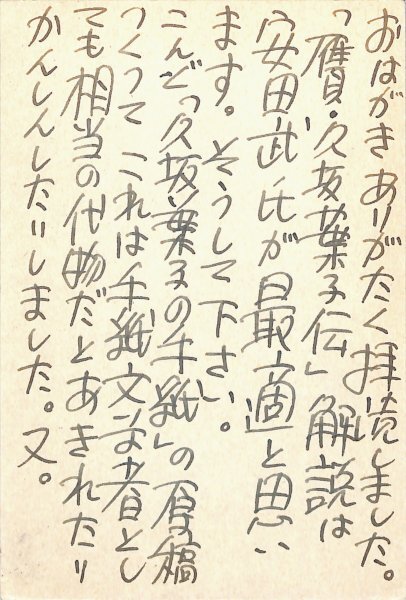 おはがきありがたく拝読しました。
「贋・久坂葉子伝」解説は
安田武氏が最適と思い
ます。そうして下さい。
こんど「久坂葉子の手紙」の原稿
つくって これは手紙文学者とし
ても相当の代物だとあきれたり
かんしんしたりしました。又。